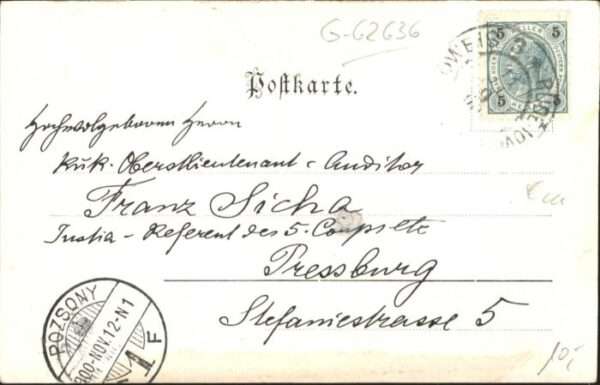 G-62636
5 HELLER 5
5 5
Postkarte.
Hochwolgeboren Herrn
Kuk. Oberstlieutenant-Auditor
Franz Sicha
Justiz-Referent des 5. Corps etc
Pressburg
Stefaniestrasse 5
POZSONY
900-NOV.12-N1
1 F
10,-